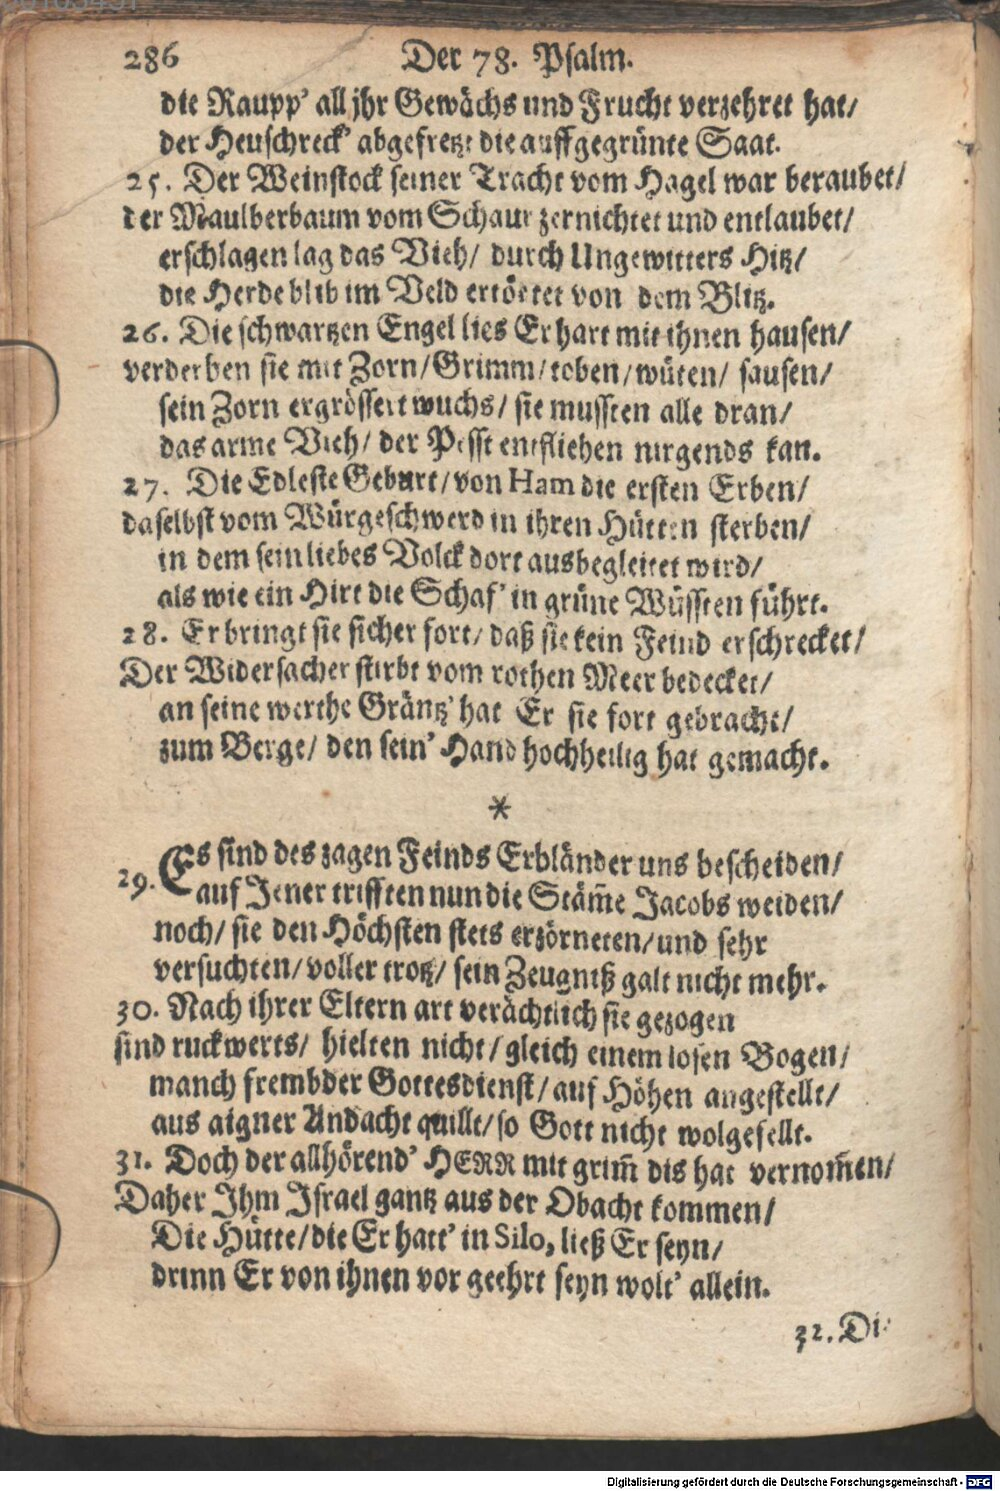 286 Der 78. Psalm.
die Raupp' all jhr Gewächs und Frucht verzehret hat/
der Heuschreck' abgefretzt die auffgegrünte Saat.
25. Der Weinstock seiner Tracht vom Hagel war beraubet/
der Maulberbaum vom Schaur zernichtet und entlaubet/
erschlagen lag das Vieh/ durch Ungewitters Hitz/
die Herde blib im Veld ertödtet von dem Blitz.
26. Die schwartzen Engel lies Er hart mit ihnen hausen/
verderben sie mit Zorn/ Grimm/ toben/ wüten/ sausen/
sein Zorn ergrössert wuchs/ sie mussten alle dran/
das arme Vieh/ der Pesst entfliehen nirgends kan.
27. Die Edleste Geburt/ von Ham die ersten Erben/
daselbst vom Würgeschwerd in ihren Hütten sterben/
in dem sein liebes Volck dort ausbegleitet wird/
als wie ein Hirt die Schaf' in grüne Wüssten führt.
28. Er bringt sie sicher fort/ daß sie kein Feind erschrecket/
Der Widersacher stirbt vom rothen Meer bedecket/
an seine werthe Gräntz' hat Er sie fort gebracht/
zum Berge/ den sein' Hand hochheilig hat gemacht.
*
29. Es sind des zagen Feinds Erbländer uns bescheiden/
auf Jener trifften nun die Stäm̃e Jacobs weiden/
noch/ sie den Höchsten stets erzörneten/ und sehr
versuchten/ voller trotz/ sein Zeugniß galt nicht mehr.
30. Nach ihrer Eltern art verächtlich sie gezogen
sind ruckwerts/ hielten nicht/ gleich einem losen Bogen/
manch frembder Gottesdienst/ auf Höhen angestellt/
aus aigner Andacht quillt/ so Gott nicht wolgefellt.
31. Doch der allhörend' HERR mit grim̃ dis hat vernom̃en/
Daher Ihm Israel gantz aus der Obacht kommen/
Die Hütte/ die Er hatt' in Silo, ließ Er seyn/
drinn Er von ihnen vor geehrt seyn wolt' allein.
32. Di-
Digitalisierung gefördert durch die Deutsche Forschungsgemeinschaft - DFG